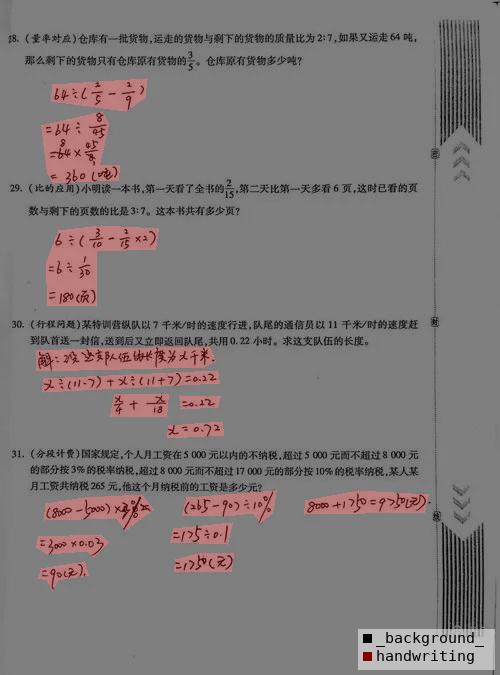 28.(量率对应)仓库有一批货物,运走的货物与剩下的货物的质量比为2:7,如果又运走64吨,
那么剩下的货物只有仓库原有货物的3/5。仓库原有货物多少吨?
64÷(2/5-2/9)
=64÷8/45
=64×45/8
=360(吨)
29.(比的应用)小明读一本书,第一天看了全书的2/15,第二天比第一天多看6页,这时已看的页
数与剩下的页数的比是3:7。这本书共有多少页?
6÷(3/10-2/15×2)
=6÷1/30
=180(页)
30.(行程问题)某特训营纵队以7千米/时的速度行进,队尾的通信员以11千米/时的速度赶
到队首送一封信,送到后又立即返回队尾,共用0.22小时。求这支队伍的长度。
解:设这支队伍的长度为x千米.
x÷(11-7)+x÷(11+7)=0.22
x/4+x/18=0.22
x=0.72
31.(分段计费)国家规定,个人月工资在5000元以内的不纳税,超过5000元而不超过8000元
的部分按3%的税率纳税,超过8000元而不超过17000元的部分按10%的税率纳税,某人某
月工资共纳税265元,他这个月纳税前的工资是多少元?
(8000-5000)×3% (265-90)÷10% 8000+1750=9750(元).
=3000×0.03 =175÷0.1
=90(元). =1750(元)
_background_
handwriting